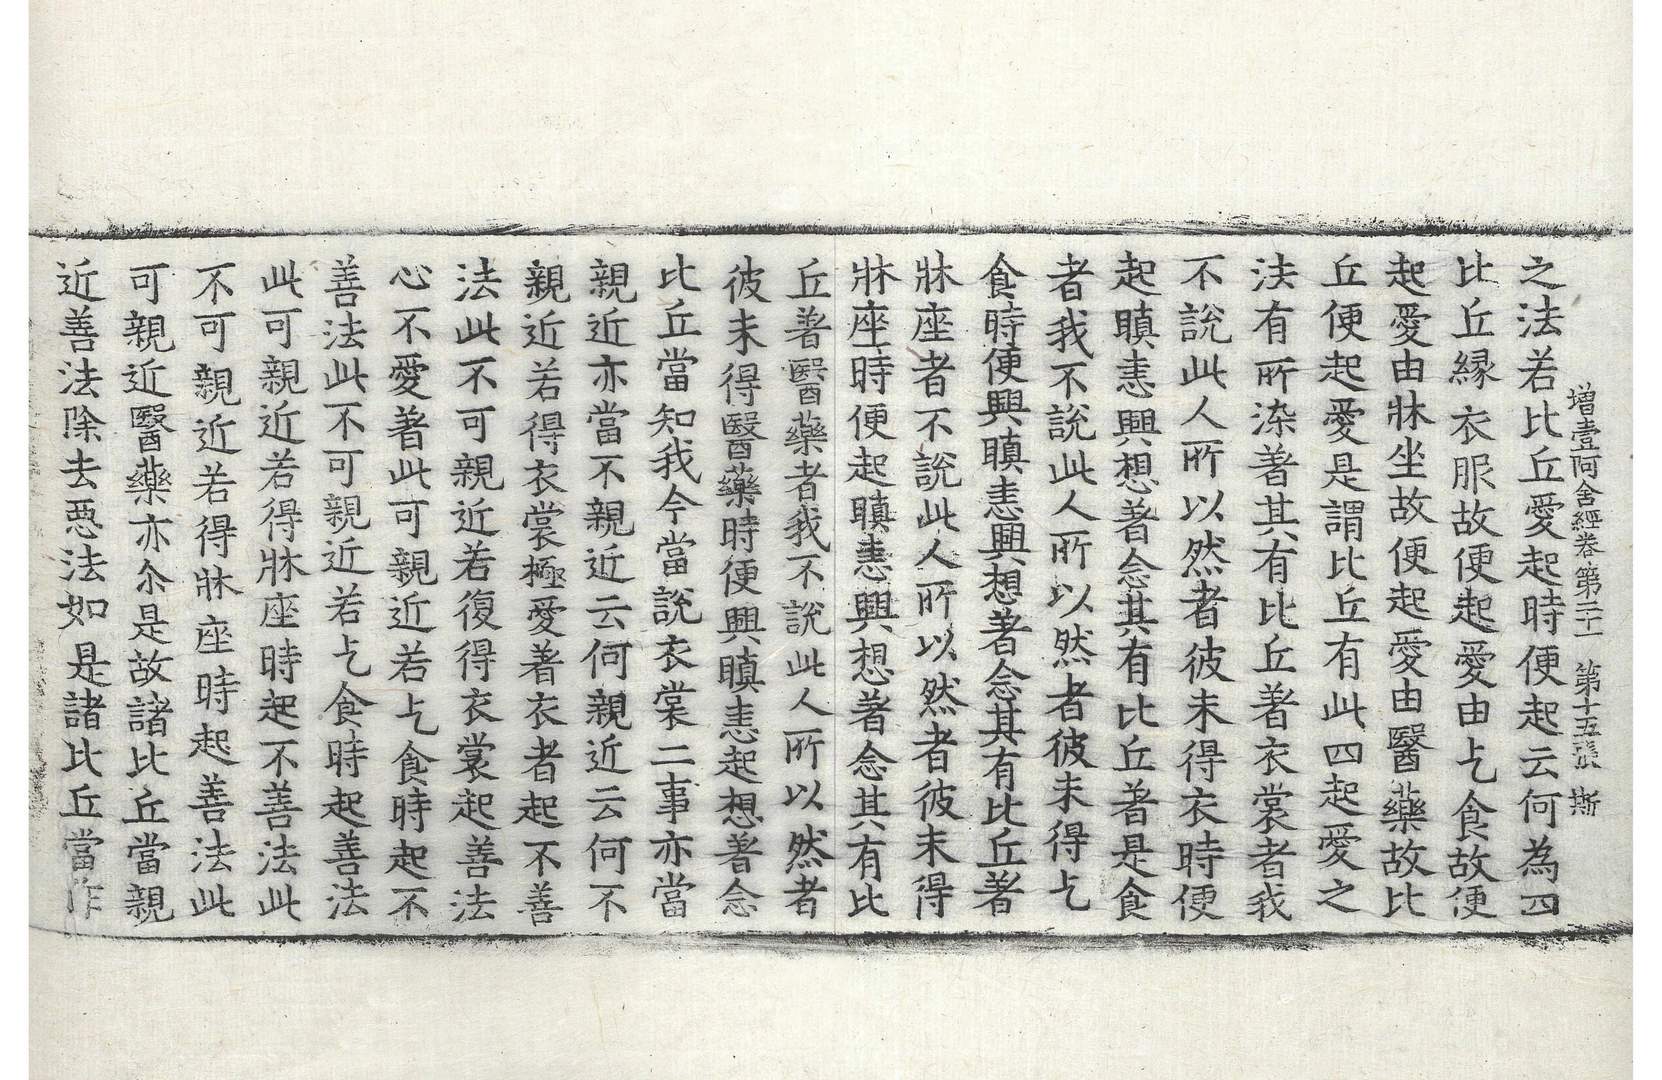 增壹阿含經卷第二十一 第十五張 斯
之法若比丘愛起時便起云何為四
比丘緣衣服故便起愛由乞食故便
起愛由牀坐故便起愛由醫藥故比
丘便起愛是謂比丘有此四起愛之
法有所染著其有比丘著衣裳者我
不說此人所以然者彼未得衣時便
起瞋恚興想著念其有比丘著是食
者我不說此人所以然者彼未得乞
食時便興瞋恚興想著念其有比丘著
牀座者不說此人所以然者彼未得
牀座時便起瞋恚興想著念其有比
丘著醫藥者我不說此人所以然者
彼未得醫藥時便興瞋恚起想著念
比丘當知我今當說衣裳二事亦當
親近亦當不親近云何親近云何不
親近若得衣裳極愛著衣者起不善
法此不可親近若復得衣裳起善法
心不愛著此可親近若乞食時起不
善法此不可親近若乞食時起善法
此可親近若得牀座時起不善法此
不可親近若得牀座時起善法此
可親近醫藥亦尒是故諸比丘當親
近善法除去惡法如是諸比丘當作